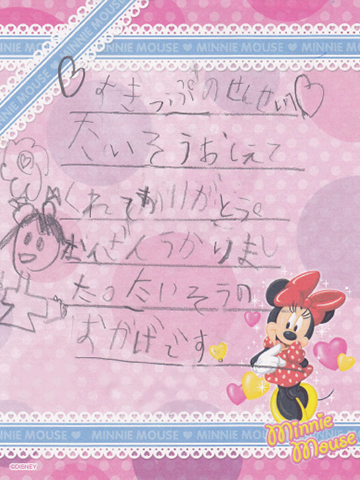 MINNIE MOUSE ♥ MINNIE MOUSE ♥ MINNIE MOUSE
MINNIE MOUSE
♡すきっぷのせんせい♡
たいそうおしえて
くれてありがとう。
つかりまし
た。たいそうの
おかげです
Minnie
Mouse
MINNIE MOUSE ♥ MINNIE MOUSE ♥ MINNIE MOUSE
©DISNEY